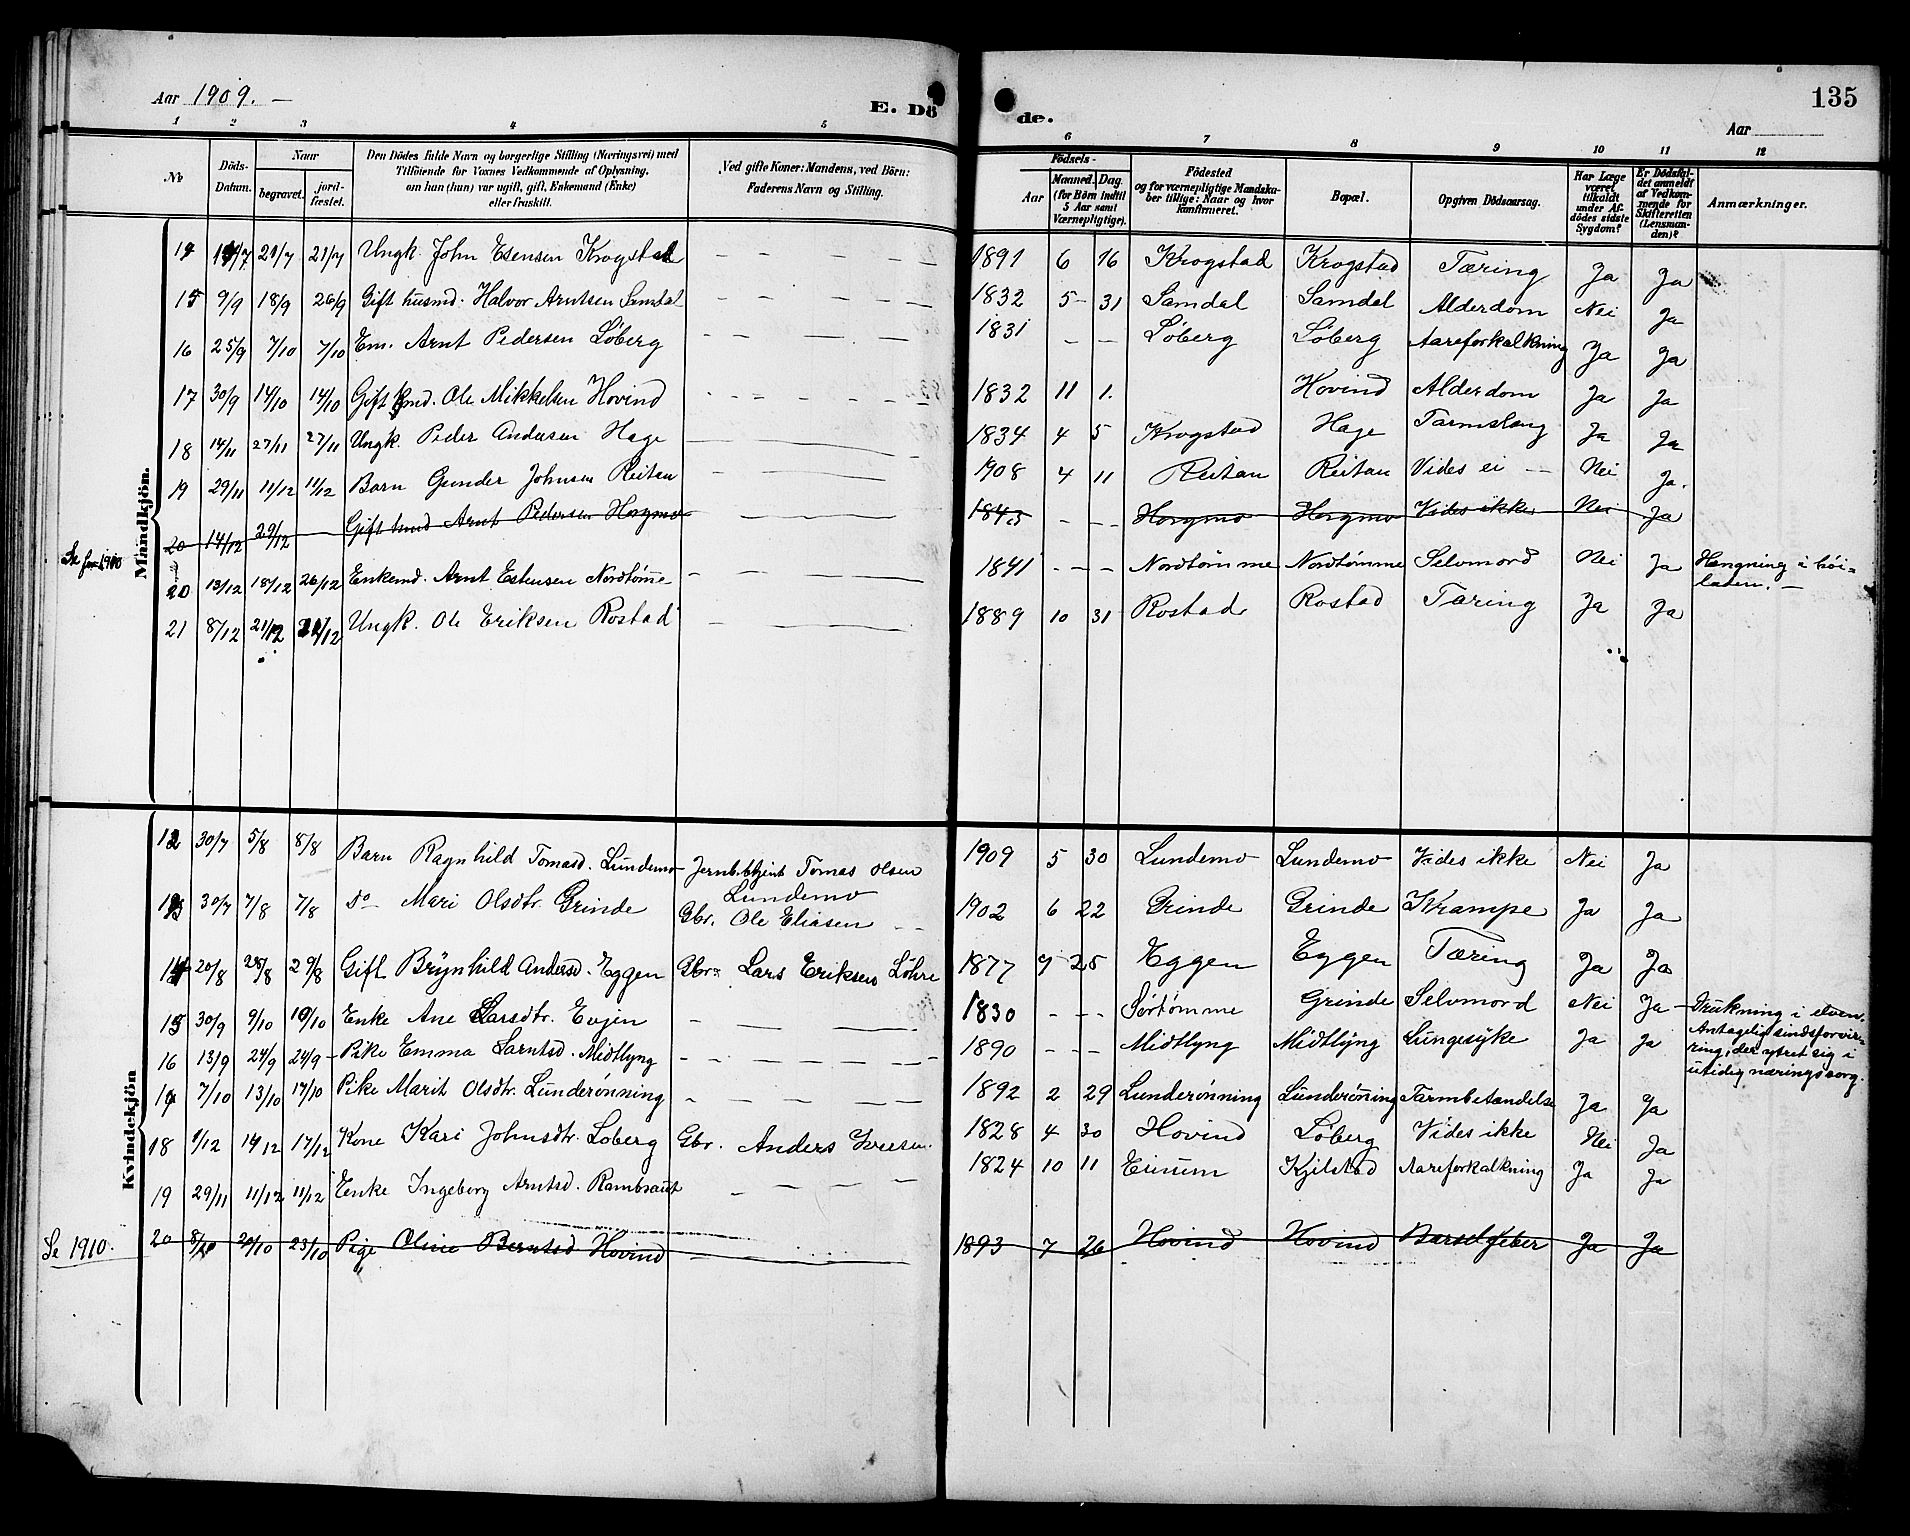 Aar 1909. —
E. Dö de.
135
Aar
1 2 3 4 5 6 7 8 9 10 11 12
№ Döds-Datum. Naar begravet. jord-fæstet. Den Dödes fulde Navn og borgerlige Stilling (Næringsvei) med Tilföiende for Voxnes Vedkommende af Oplysning, om han (hun) var ugift, gift, Enkemand (Enke) eller fraskilt. Ved gifte Koner: Mandens, ved Börn: Faderens Navn og Stilling. Födsels- Aar Maaned. Dag. (for Börn indtil 5 Aar samt Værnepligtige). Födested og for værnepligtige Mandskaber tillige: Naar og hvor konfirmeret. Bopæl. Opgiven Dödsaarsag. Har Læge været tilkaldt under Afdödes sidste Sygdom? Er Dödsfaldet anmeldt af Vedkommende for Skifteretten (Lensmanden)? Anmærkninger.
Mandkjön.
14 1/7 21/7 21/7 Ungk. John Esensen Krogstad — — — — — 1891 6 16 Krogstad Krogstad Tæring Ja Ja
15 9/9 18/9 26/9 Gift husmd. Halvor Arntsen Samdal — — — — — 1832 5 31 Samdal Samdal Alderdom Nei Ja
16 25/9 7/10 7/10 Em. Arnt Pedersen Löberg — — — — — 1831 — — Löberg Löberg Aareforkalkning Ja Ja
17 30/9 14/10 14/10 Gift kmd. Ole Mikkelsen Hovind — — — — — 1832 11 1. Hovind Alderdom Ja Ja
18 14/11 27/11 27/11 Ungk. Peder Andersen Hage — — — 1834 4 5 Krogstad Hage Tarmslyng Ja Ja
19 29/11 11/12 11/12 Barn Gunder Johnsen Reitan — — — 1908 4 11 Reitan Reitan Vides ei — Nei Ja.
20 14/12 29/12 Gift kmd Arnt Pedersen Horgmo — — — 1843 — — Horgmo Horgmo Vides ikke Nei Ja
Se for 1910
20 13/12 18/12 26/12 Enkemd. Arnt Estensen Nordtømme — — — — — 1841 — — — Nordtømme Nordtømme Selvmord Nei Ja Hængning i höi-
laden. —
21 8/12 21/12 21/12 Ungk. Ole Eriksen Rostad — — — 1889 10 31 Rostad Rostad Tæring Ja Ja
Kvindekjön
12 30/7 5/8 8/8 Barn Ragnhild Tomasd. Lundemo Jernb.btjent Tomas Olsen
Lundemo 1909 5 30 Lundemo Lundemo Vides ikke Nei Ja
13 30/7 7/8 7/8 do — Mari Olsdtr. Grinde Gbr. Ole Eliasen — — 1902 6 22 Grinde Grinde Krampe Ja Ja
14 20/8 28/8 29/8 Gift Brynhild Andersd. Eggen Gbr. Lars Eriksen Löhre 1877 9 25 Eggen Eggen Tæring Ja Ja
15 30/9 9/10 10/10 Enke Ane Larsdtr. Evjen — — — — 1830 — — — Sørtømme Grinde Selvmord Nei Ja — Drukning i elven.
Antagelig sindsforvir-
ring, der ytret sig i
utidig næringssorg.
16 13/9 24/9 24/9 Pike Emma Larntsd. Midtlyng — — — — — 1890 — — — Midtlyng Midtlyng Lungesyke Ja Ja
17 7/10 13/10 17/10 Pike Marit Olsdtr. Lunderønning — — — — — 1892 2 29 Lunderønning Lunderønning Tarmbetændelse Ja Ja
18 1/12 14/12 17/12 Kone Kari Johnsdtr. Løberg Gbr. Anders Iversen. 1828 4 30 Hovind Løberg Vides ikke Nei Ja
19 29/11 11/12 11/12 Enke Ingeborg Arntsd. Rambraut — — — — 1824 10 11 Kjelstad Aareforkalkning Ja Ja
Se 1910.
20 20/10 23/10 Pige Oline Berntsd Hovind — — 1893 7 26 Hovind Hovind Barselfeber Ja Ja